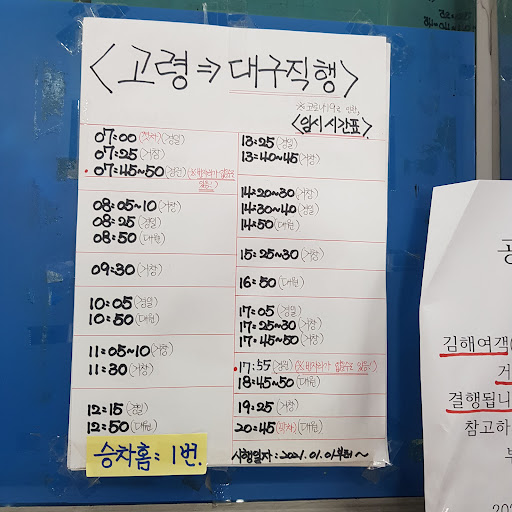 <고령⇒대구직행>
※코로나19로 인한,
<임시 시간표>
07:00 (첫차)(경일)
07:25 (거창)
• 07:45~50 (경전) (※빈자리가 없을수도 있음!)
08:05~10 (거창)
08:25 (경일)
08:50 (대원)
09:30 (거창)
10:05 (경일)
10:50 (대원)
11:05~10 (거창)
11:30 (거창)
12:15 (경일)
12:50 (대원)
13:25 (경일)
13:40~45 (거창)
14:20~30 (거창)
14:30~40 (경일)
14:50 (대원)
15:25~30 (거창)
16:50 (대원)
17:05 (경일)
17:25~30 (거창)
17:45~50 (거창)
• 17:55 (경원) (※빈자리가 없을수도 있음!)
18:45~50 (대원)
19:25 (거창)
20:45 (막차) (대원)
승차홈: 1번.
시행일자: 2021.01.01부터~
김해여객
거
결행됩니
참고하
부
202